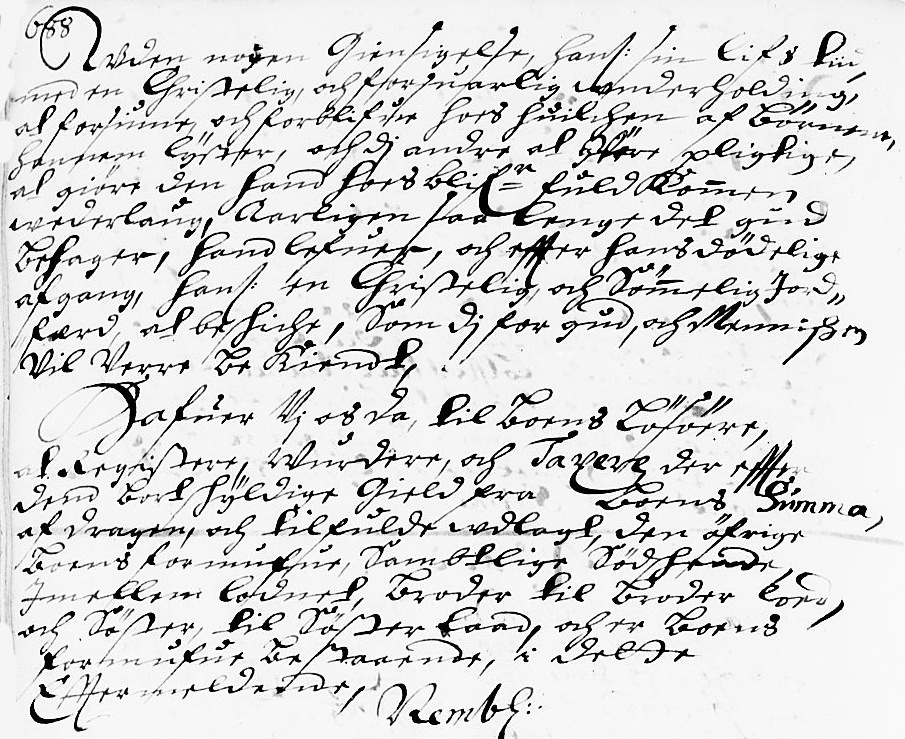 688
Uden nogen Giensigelse, hans: sin lifs tiid
med en Christelig, och forsuarlig underholding,
at forsiune, och forblifue hoes huilchen af Börnene,
hannem lyster, och dj andre at were pligtige,
at giöre den hand hoes blifr fuld Kommen
wederlaug, Aarligen saa lenge det gud
behager, hand lefuer, och effter hans dödelige
afgang, hans: en Christelig, och Sömmelig Jord„
færd, at beschiche, Som dj for gud, och Mennisken
Vil Verre Be Kiendt,
Gafuer Vj os da, til Boens Löfsöere,
at Registere, Wurdere, och Taxere, der effter
dend bortschyldige Gield fra Boens Summa,
af dragen, och tilfulde udlagt, den öfrige
Boens formufue, Sambtlige Södschende,
Imellem lodnet, Broder til Broder loed,
och Söster, til Söster laad, och er Boens
formufue Bestaaende, i dette
Efftermeldende,
Rembl::